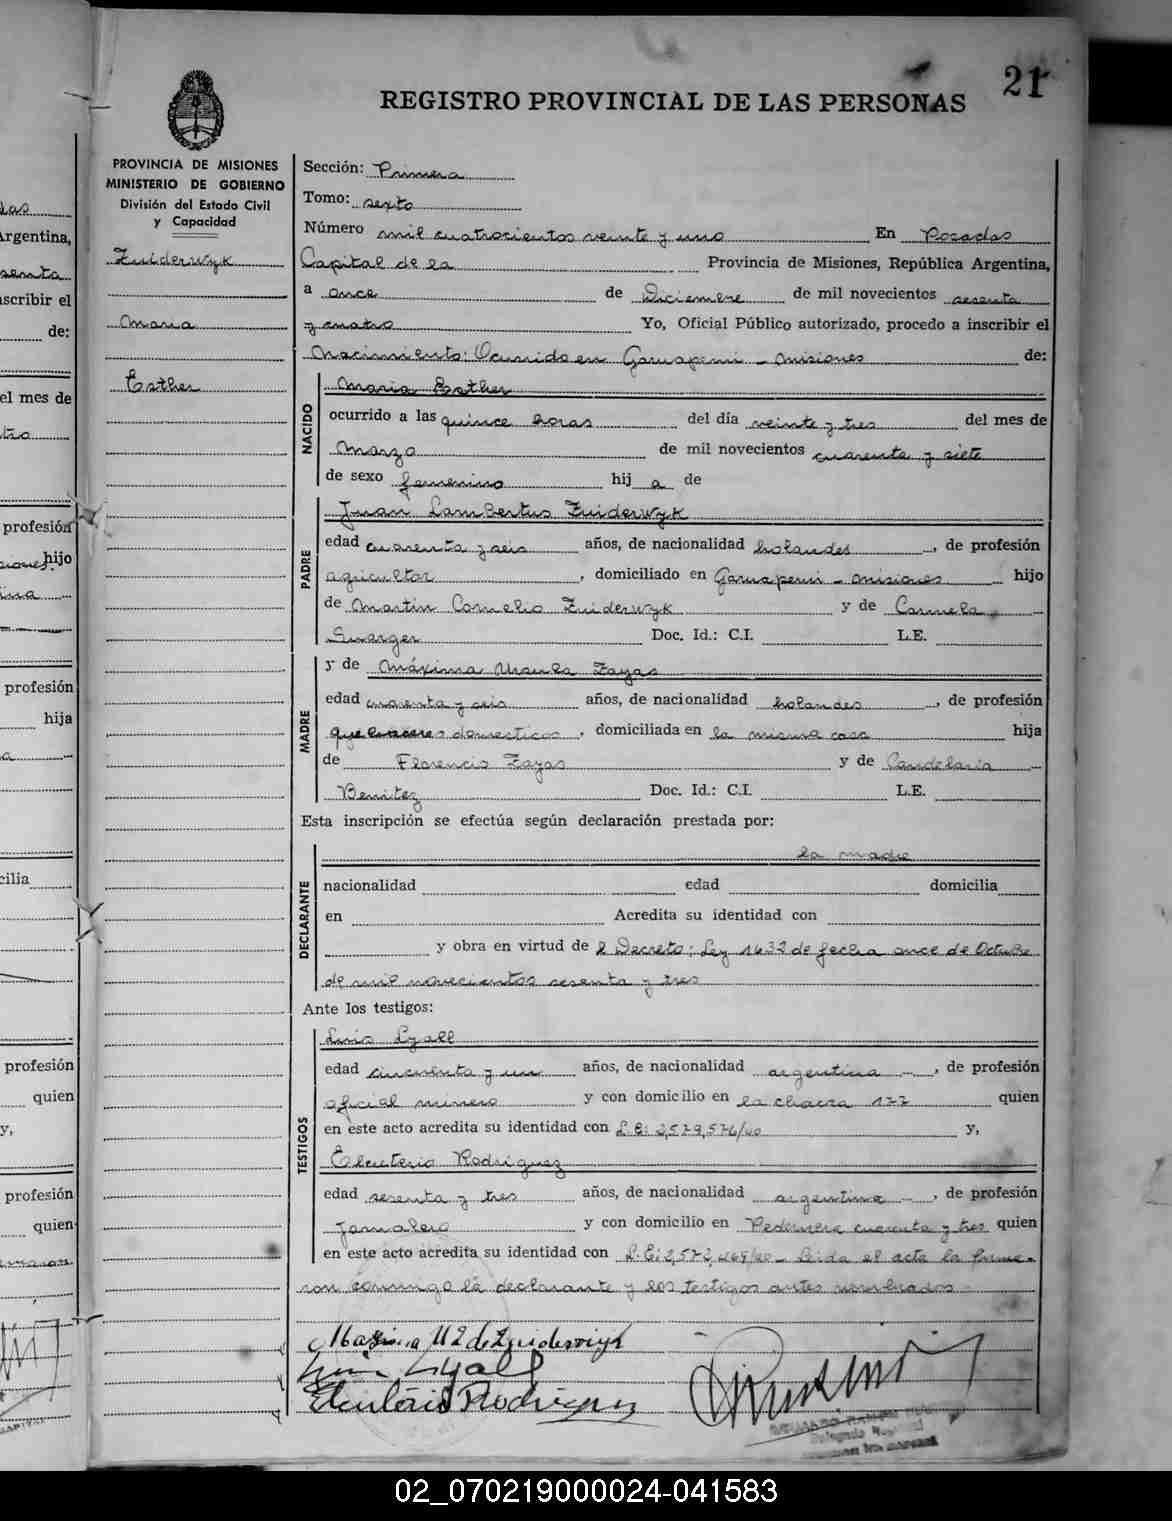 21
REGISTRO PROVINCIAL DE LAS PERSONAS
PROVINCIA DE MISIONES
MINISTERIO DE GOBIERNO
División del Estado Civil
y Capacidad
Zuiderwyk
Maria
Esther
Sección: Primera
Tomo: sexto
Número mil cuatrocientos veinte y uno En Posadas
Capital de la Provincia de Misiones, República Argentina,
a once de Diciembre de mil novecientos sesenta
y cuatro Yo, Oficial Público autorizado, procedo a inscribir el
Nacimiento: Ocurrido en Garuapemi - Misiones de:
NACIDO
Maria Esther
ocurrido a las quince horas del día veinte y tres del mes de
Marzo de mil novecientos cuarenta y siete
de sexo femenino hij a de
PADRE
Juan Lambertus Zuiderwyk
edad cuarenta y seis años, de nacionalidad holandes, de profesión
agricultor, domiciliado en Garuapemi - Misiones hijo
de Martin Cornelio Zuiderwyk y de Carmela
Swarger Doc. Id.: C.I. L.E.
MADRE
y de Máxima Ursula Zayas
edad cuarenta y seis años, de nacionalidad holandes, de profesión
quehaceres domesticos, domiciliada en la misma casa hija
de Florencio Zayas y de Candelaria
Benitez Doc. Id.: C.I. L.E.
Esta inscripción se efectúa según declaración prestada por:
DECLARANTE
la madre
nacionalidad edad domicilia
en Acredita su identidad con
y obra en virtud de l Decreto: Ley 1632 de fecha once de Octubre
de mil novecientos sesenta y tres
Ante los testigos:
TESTIGOS
Luis Lyall
edad cincuenta y un años, de nacionalidad argentina, de profesión
oficial minero y con domicilio en la chacra 177 quien
en este acto acredita su identidad con L.E: 2,579,576/00 y,
Eleuterio Rodriguez
edad sesenta y tres años, de nacionalidad argentina, de profesión
Jornalero y con domicilio en Pedernera cuarenta y tres quien
en este acto acredita su identidad con L.E: 2,572,269/00 - Leida el acta la firma-
ron conmigo la declarante y los testigos antes nombrados -
Maxima U Z de Zuiderwijk
Luis Lyall
Eleuterio Rodriguez
02_070219000024-041583